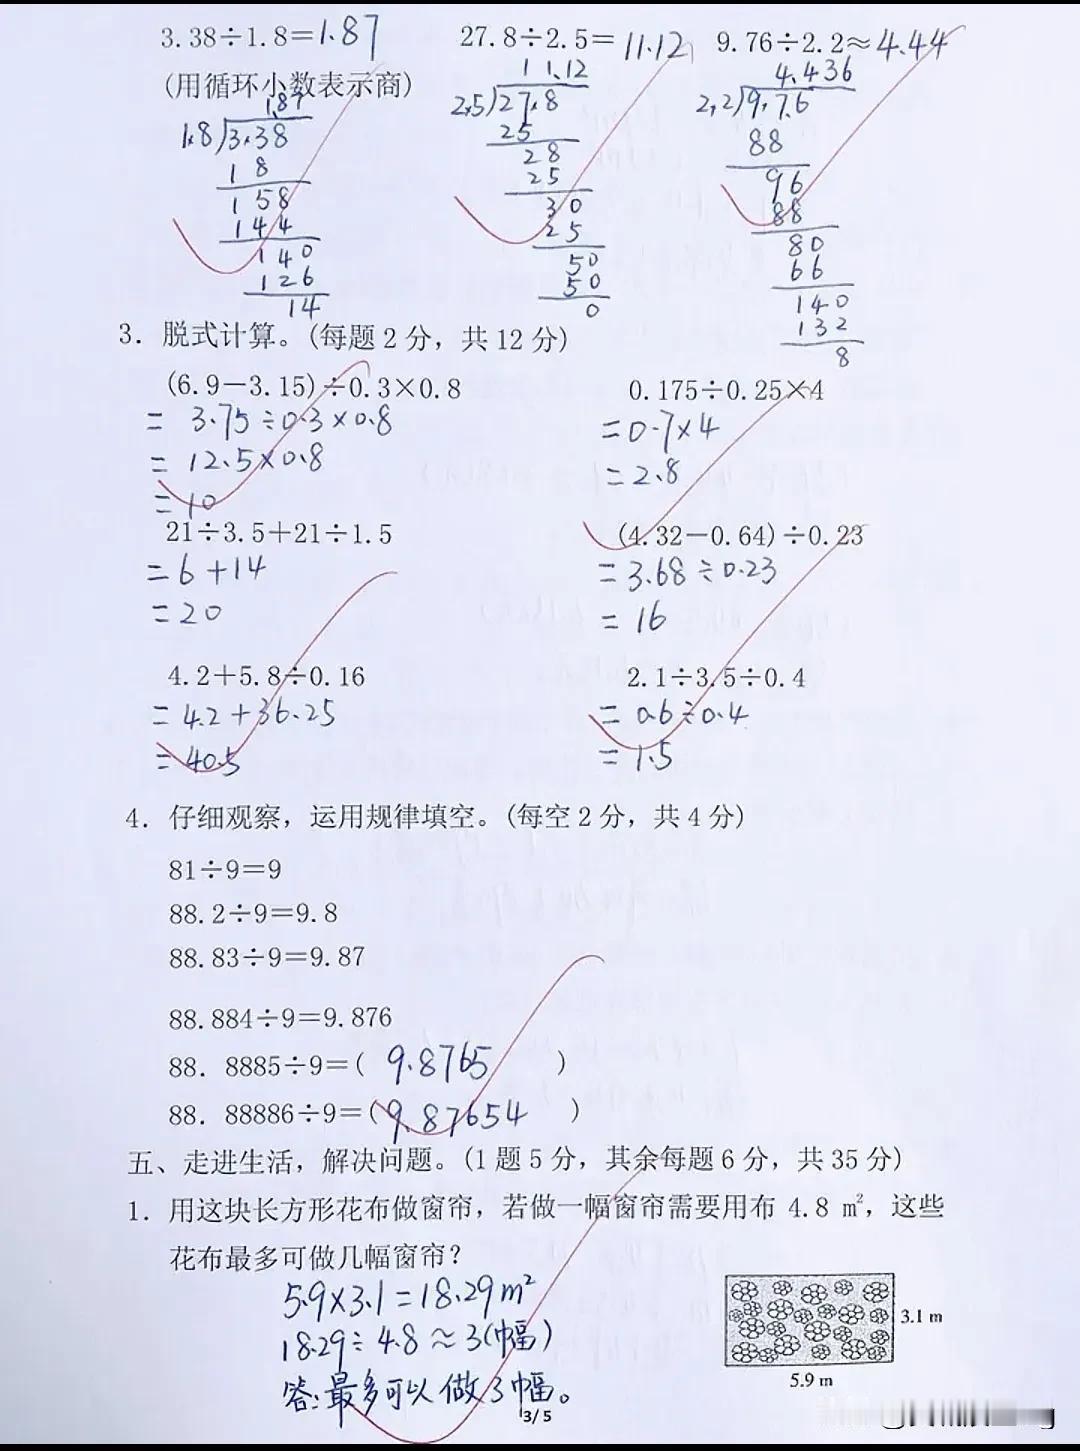 3.38÷1.8=1.87 27.8÷2.5=11.12 9.76÷2.2≈4.44
(用循环小数表示商)
1.87 11.12 4.436
1.8 3.38 2.5 27.8 2.2 9.7.6
18 25 88
158 28 96
144 25 88
140 30 80
126 25 66
14 50 140
50 132
0 8
3. 脱式计算。(每题2分，共12分)
(6.9-3.15)÷0.3×0.8 0.175÷0.25×4
= 3.75÷0.3×0.8 =0.7×4
= 12.5×0.8 =2.8
=10
21÷3.5+21÷1.5 (4.32-0.64)÷0.23
=6+14 =3.68÷0.23
=20 =16
4.2+5.8÷0.16 2.1÷3.5÷0.4
=4.2+36.25 =0.6÷0.4
=40.5 =1.5
4. 仔细观察，运用规律填空。(每空2分，共4分)
81÷9=9
88.2÷9=9.8
88.83÷9=9.87
88.884÷9=9.876
88.8885÷9=( 9.8765 )
88.88886÷9=(9.87654 )
五、走进生活，解决问题。(1题5分，其余每题6分，共35分)
1. 用这块长方形花布做窗帘，若做一幅窗帘需要用布 4.8 m²，这些
花布最多可做几幅窗帘？
5.9×3.1=18.29m²
18.29÷4.8≈3(幅)
答:最多可以做3幅。
3.1 m
5.9 m
3/5